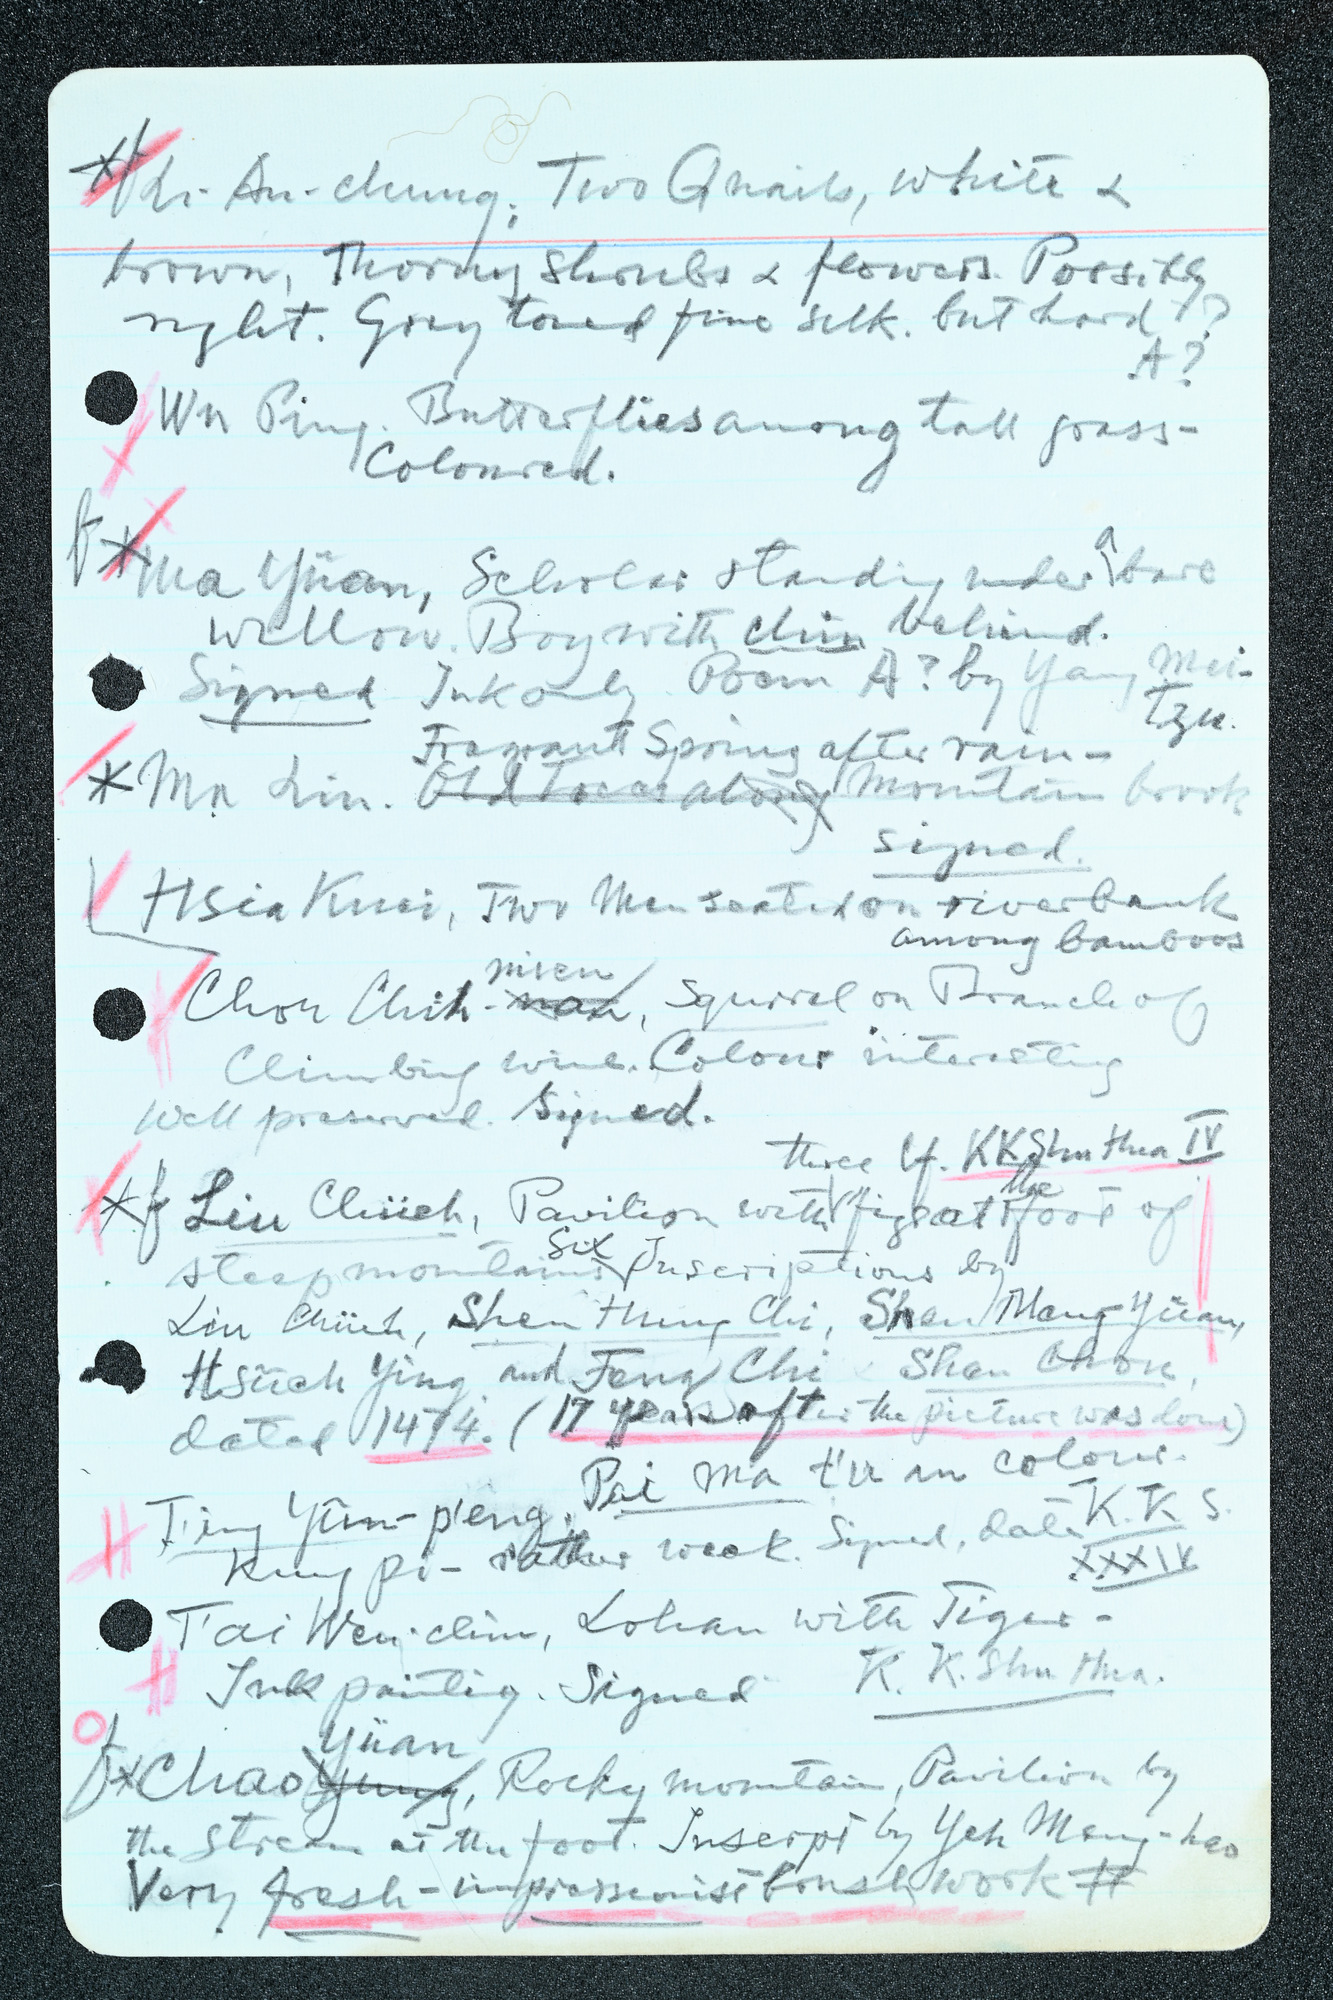 Li An-chung, Two Quails, white &
brown, Thorny shrubs & flowers. Possibly
right. Grey toned fine silk. but hard ??
A?
Wu Ping. Butterflies among tall grass-
Coloured.
Ma Yüan, Scholar standing under a bare
willow. Boy with chin behind.
Signed Ink only. Poem A? by Yang Mei-
tzu.
Fragrant Spring after rain-
Ma Lin. Old trees along Mountain brook
signed.
Hsia Kuei, Two Men seated on riverbank
among bamboos
nisen
Chou Chih-, Squirrel on Branch of
Climbing wine. Colour interesting
well preserved. Signed.
three cf. KKShu Hua IV
Liu Chüeh, Pavilion with figs at the foot of
steep mountains Six Inscriptions by
Liu Chüeh, Shen Heng Chi, Shen Meng Yüan,
Hsüeh Ying and Feng Chi Shen Chou,
dated 1474. (17 years after the picture was done)
Pai ma t'u in colour.
Ting Yün-p'eng. Signed, date K.K S.
Kung pi- rather weak. XXXIV
T'ai Wen-chin, Lohan with Tiger-
Ink painting. Signed K. K. Shu Hua.
Yüan
Chao Yung, Rocky mountain, Pavilion by
the stream at the foot. Inscript by Yeh Meng-hao
Very fresh-impressionist brush work #